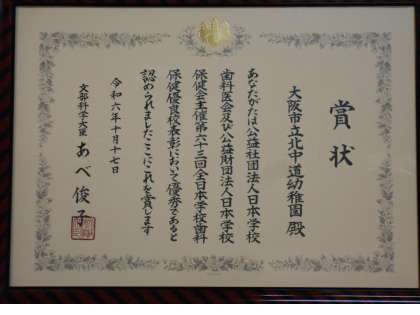 賞状
大阪市立北中道幼稚園 殿
あなたがたは公益社団法人日本学校
歯科医会及び公益財団法人日本学校
保健会主催第六十三回全日本学校歯科
保健優良校表彰において優秀であると
認められましたここにこれを賞します
令和六年十月十七日
文部科学大臣 あべ俊子